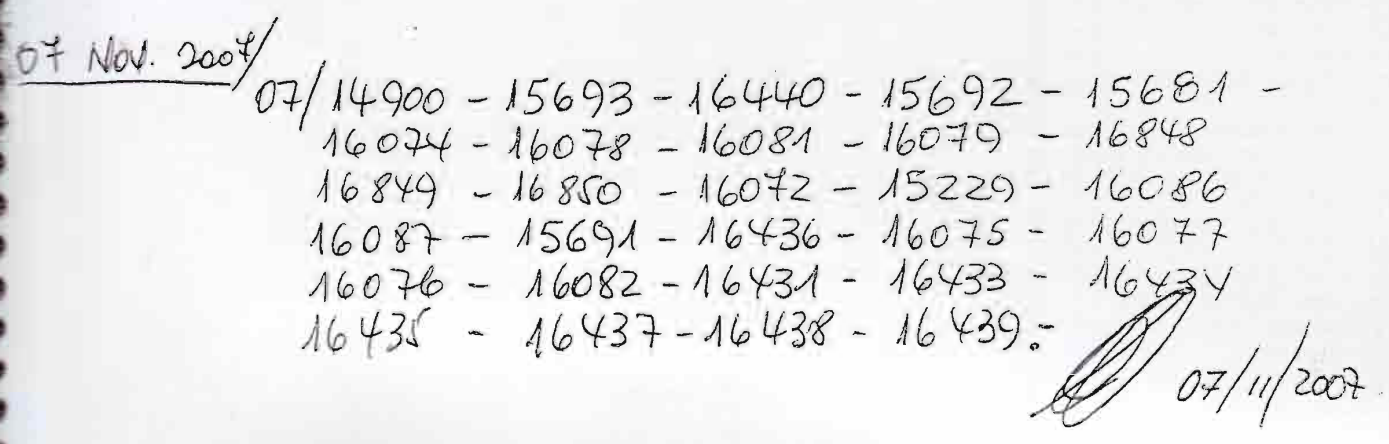 07 Nov. 2007/
07/14900 - 15693 - 16440 - 15692 - 15681 -
16074 - 16078 - 16081 - 16079 - 16848
16849 - 16850 - 16072 - 15229 - 16086
16087 - 15691 - 16436 - 16075 - 16077
16076 - 16082 - 16431 - 16433 - 16434
16435 - 16437 - 16438 - 16439.-
07/11/2007